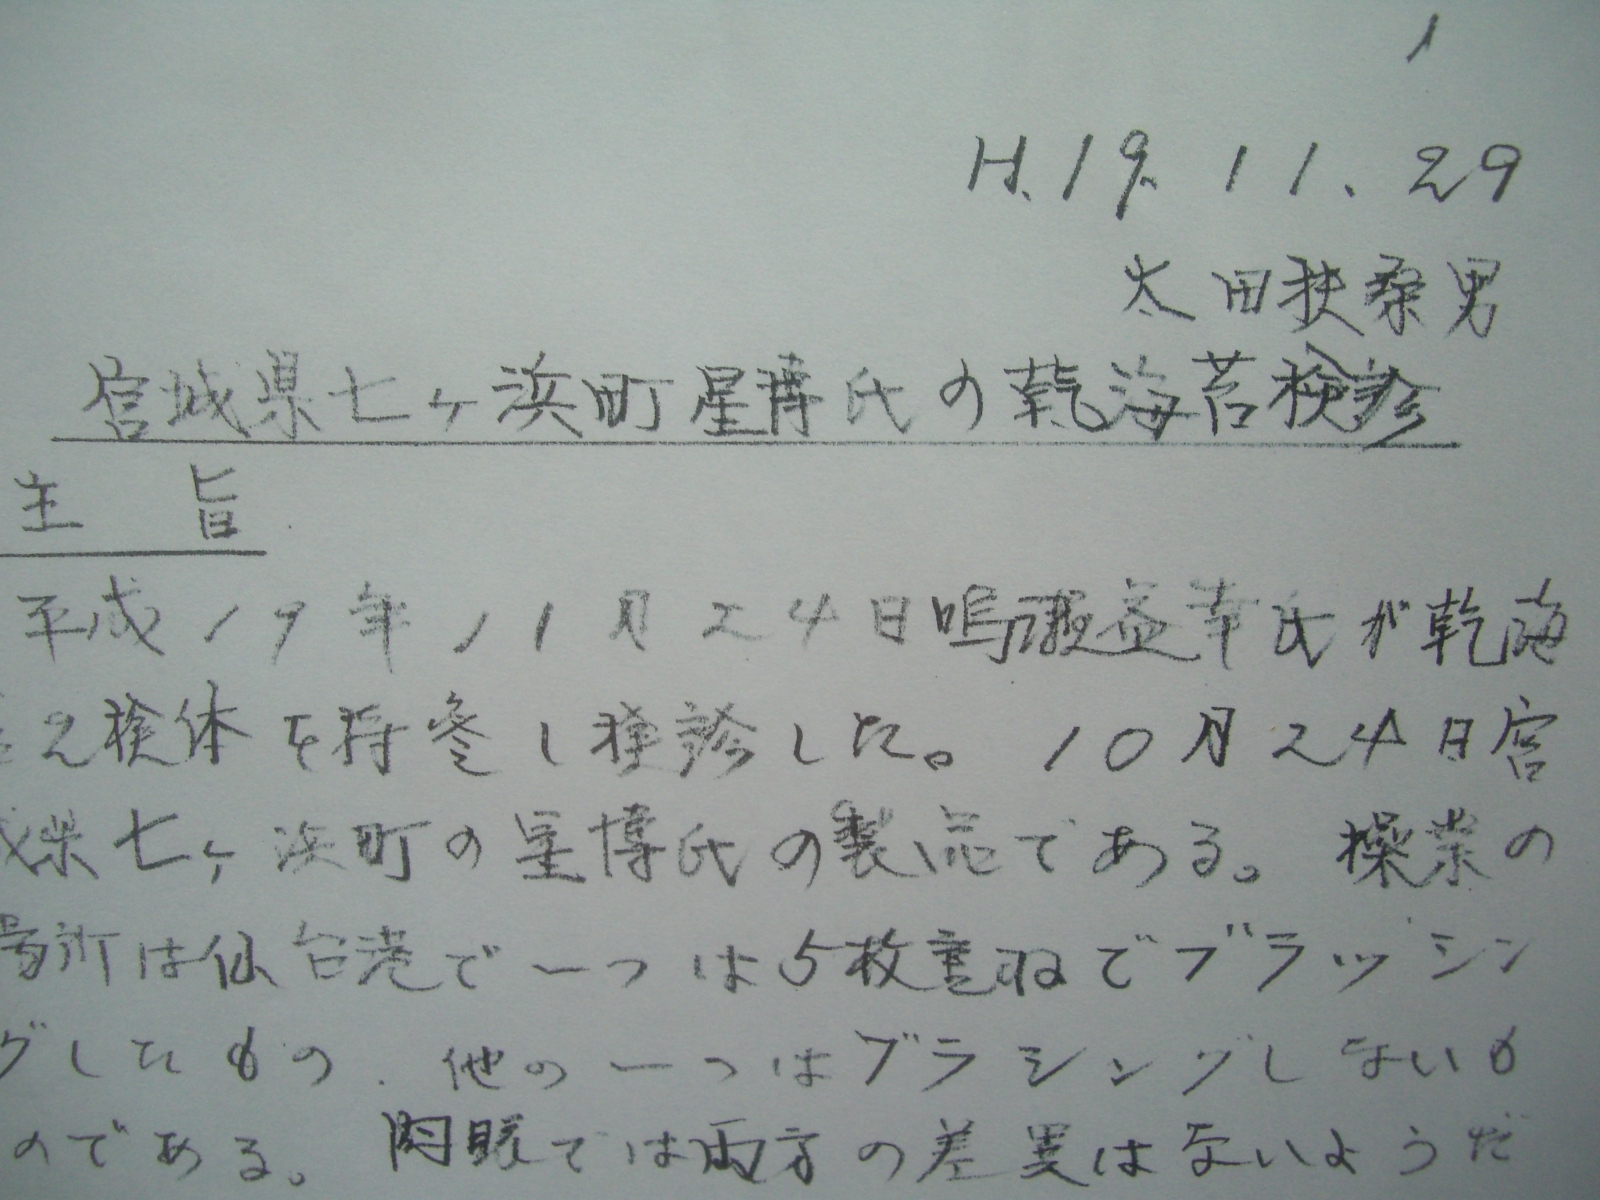 1
H.19.11.29
太田扶桑男
宮城県七ヶ浜町星博氏の乾海苔検診
主旨
平成19年11月24日嗚瀬益幸氏が乾海
検体を持参し検診した。10月24日宮
城県七ヶ浜町の星博氏の製品である。操業の
場所は仙台港で一つは5枚重ねでブラッシン
グしたもの、他の一つはブラシングしないも
のである。肉眼では両方の差異はないようだ